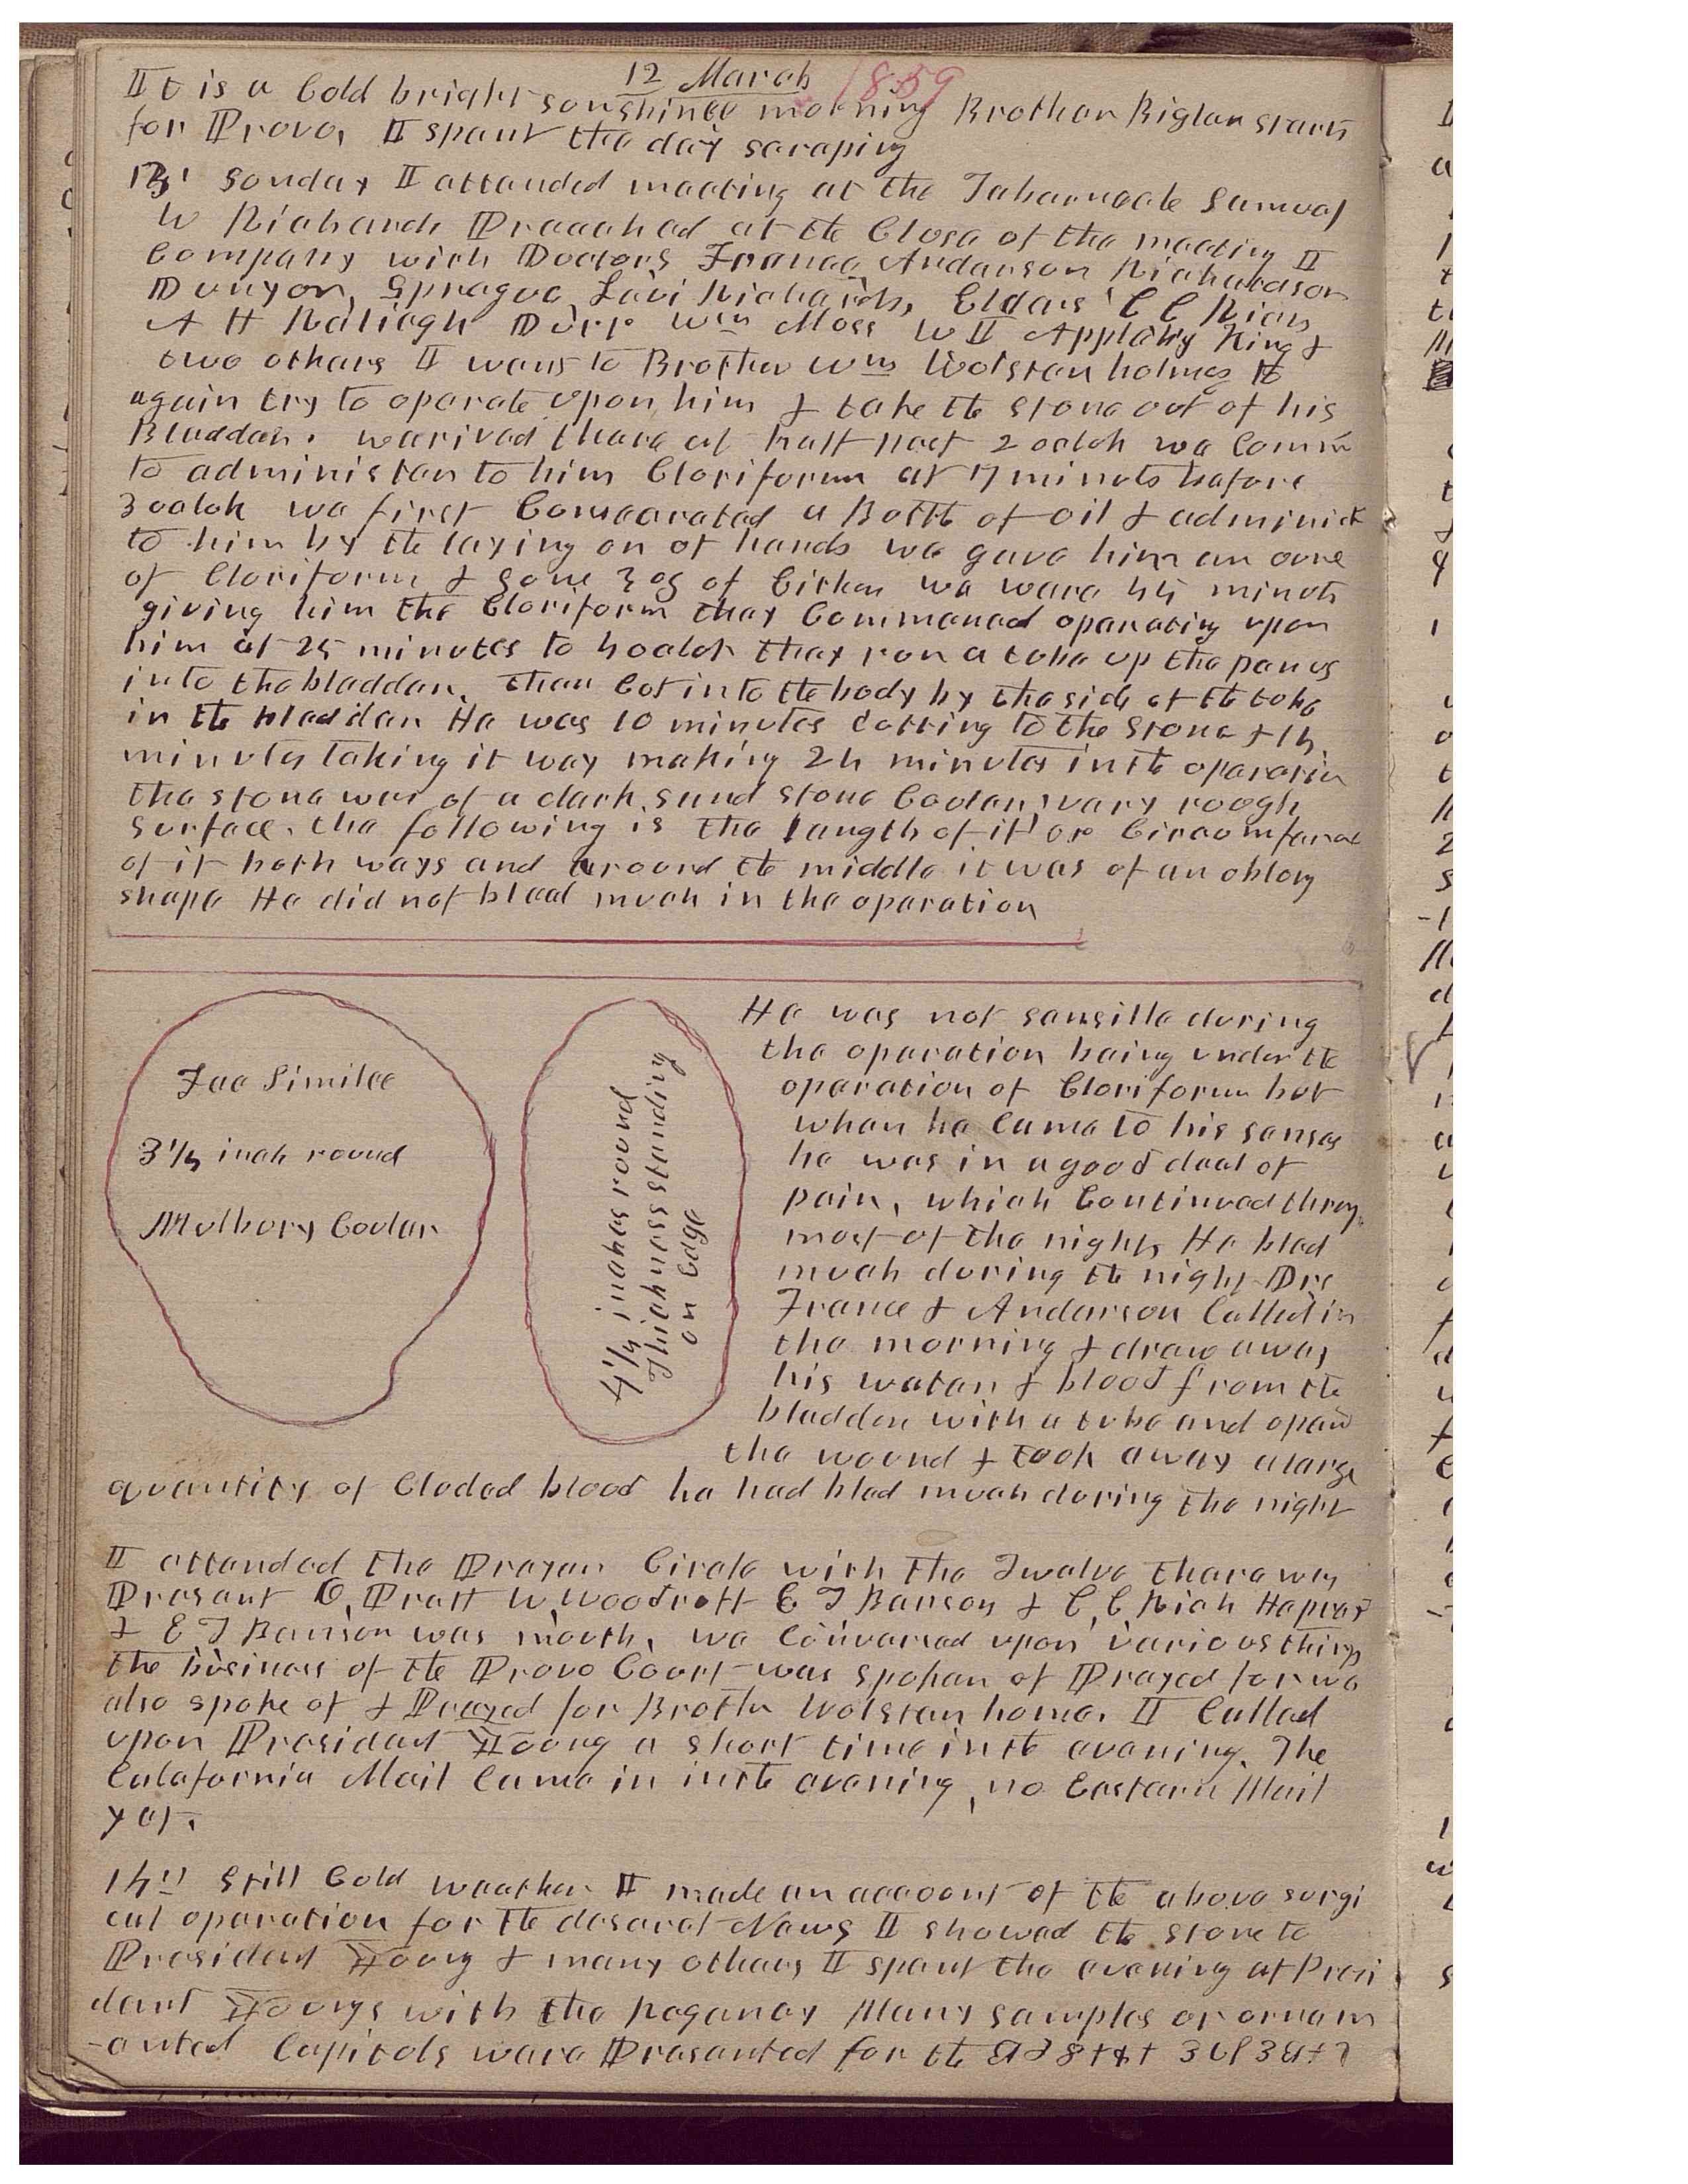 12 March 1859
It is a Cold bright sunshinee morning Brother Bigler starts
for Provo, I spent the day scraping
13th Sunday I attended meeting at the Tabernacle Samuel
W Richards Preached at the Close of the meeting I
Company with Doctors France Anderson Richardson
Dunyon, Sprague Levi Richards, Elders C C Rich,
A H Raliegh Durr Wm Moss W I Appleby King &
two others I went to Brother Wm Wolstenholmes to
again try to operate upon him & take the stone out of his
Bladder. we arived there at half past 2 oclok we Comm
to administer to him Cloriform at 17 minuts before
3 oclok we first Consecrated a Bottle of oil & administ
to him by the laying on of hands we gave him an ounc
of Cloriform & some 3 os of Either we were 45 minuts
giving him the Cloriform they Commenced operating upon
him at 25 minutes to 4 oclok they run a tube up the penus
into the bladder. then Cut into the body by the side of the tube
in the bladder He was 10 minutes cutting to the stone & 14
minutes taking it way making 24 minutes in the operation
the stone was of a dark sand stone Couler, vary rough
surface. the following is the length of it or Circumfarnc
of it both ways and around the middle it was of an oblong
shape He did not bleed much in the operation
Fac Similee
3 1/4 inch round
Mulbery Couler
4 1/4 inches round
Thickness standing
on Edge
He was not sensille during
the operation being under the
operation of Cloriform but
when he came to his senses
he was in a good deal of
pain, which Continued throug
most of the night, He bled
much during the night Drs
France & Anderson Called in
the morning & drew away
his water & blood from the
bladder with a tube and opend
the wound & took away a large
quantity of Cloded blood he had bled much during the night
I attended the Prayer Circle with the Twelve there was
Present O, Pratt W, Woodruff E T Benson & C, C Rich He prayd
& E T Benson was mouth, we Conversed upon various things
the business of the Provo Court was spoken of Prayed for we
also spoke of & Prayed for Brother Wolstenhome. I Called
upon President Young a short time in the evening. The
Calafornia Mail Came in in the evening, no Eastern Mail
yet.
14th Still Cold weather I made an account of the above surgi
cal operation for the deseret News I showed the stone to
President Young & many others I spent the evening at Presi
dent Youngs with the Regency Many samples or ornam
-ented Capitols were Presented for the